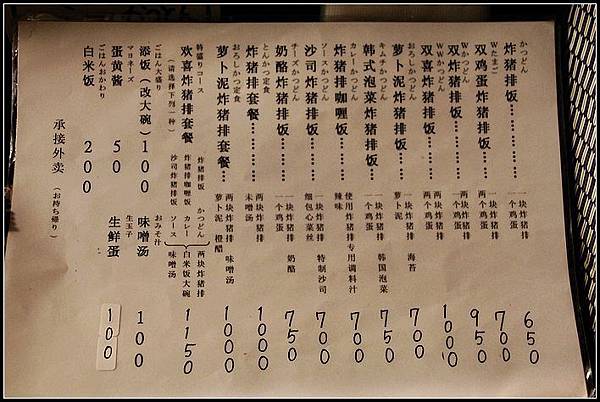 かつどん
炸猪排饭……… 一块炸猪排 一个鸡蛋 650
Wたまご
双鸡蛋炸猪排饭…… 一块炸猪排 两个鸡蛋 700
Wかつどん
双炸猪排饭……… 两块炸猪排 一个鸡蛋 950
WWかつどん
双喜炸猪排饭…… 两块炸猪排 两个鸡蛋 1000
おろしかつどん
萝卜泥炸猪排饭…… 一块炸猪排 海苔 萝卜泥 700
キムチかつどん
韩式泡菜炸猪排饭… 一块炸猪排 韩国泡菜 一个鸡蛋 750
カレーかつどん
炸猪排咖喱饭…… 使用炸猪排专用调料汁 辣味 700
ソースかつどん
沙司炸猪排饭…… 一块炸猪排 特制沙司 细包心菜丝 700
チーズかつどん
奶酪炸猪排饭…… 一块炸猪排 奶酪 一个鸡蛋 750
とんかつ定食
炸猪排套餐……… 两块炸猪排 未增汤 1000
おろしかつ定食
萝卜泥炸猪排套餐… 两块炸猪排 味噌汤 萝卜泥 橙醋 1000
特盛りコース
欢喜炸猪排套餐 炸猪排饭 かつどん 两块炸猪排 1150
（请选择下列一种） 炸猪排咖喱饭 カレー 白米饭大碗
沙司炸猪排饭 ソース 味噌汤
ごはん大盛り
添饭（改大碗）100
おみそ汁
味噌汤 100
マヨネーズ
蛋黄酱 50
生玉子
生鲜蛋 100
ごはんおかわり
白米饭 200
承接外卖（お持ち帰り）